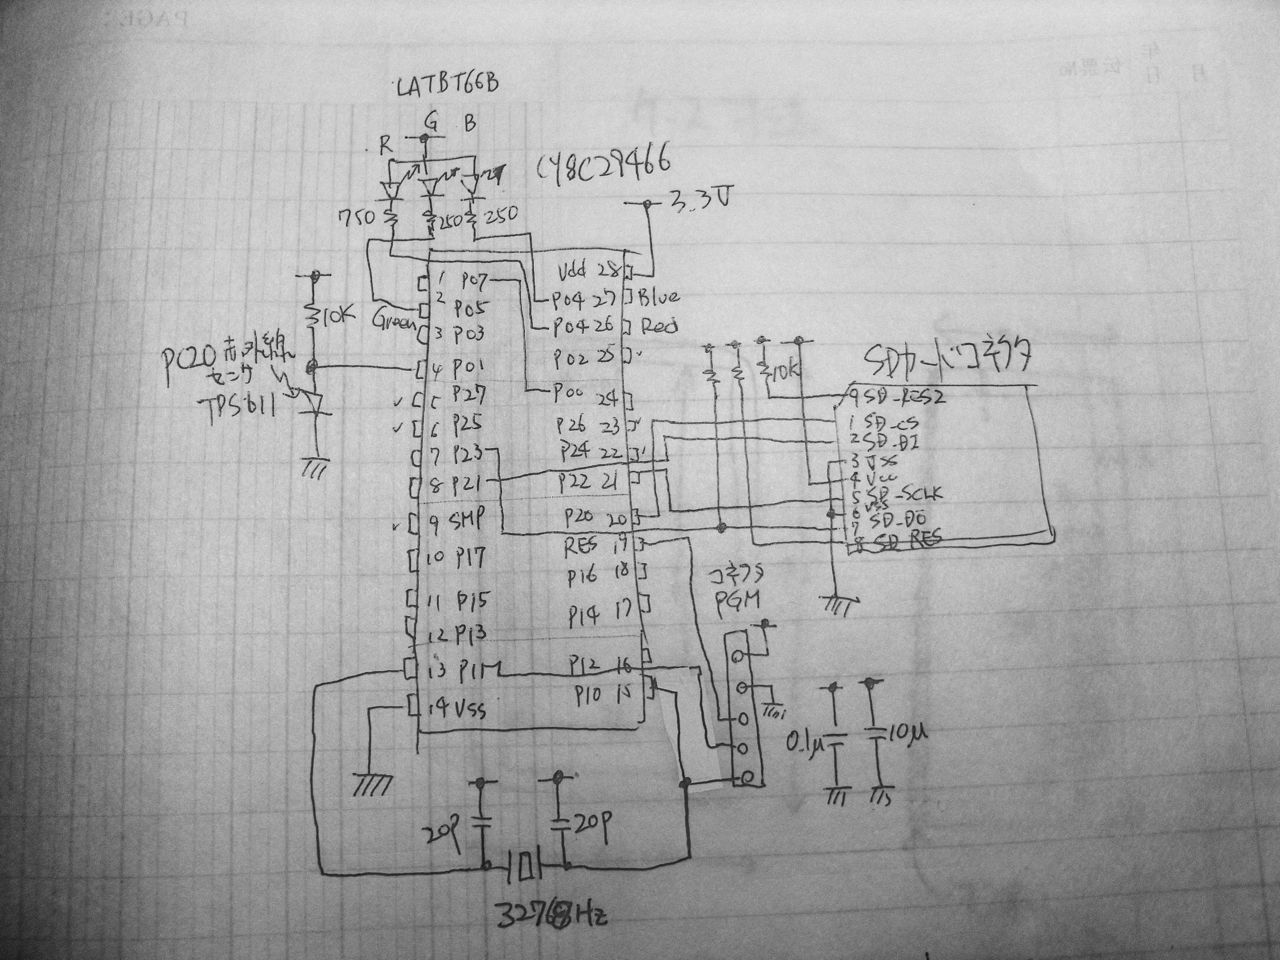 PAGE:
LATBT66B
R G B
CY8C29466
750 250 250
3.3V
1 P07
2 P05
3 P03
4 P01
5 P27
6 P25
7 P23
8 P21
9 SMP
10 P17
11 P15
12 P13
13 P11
14 VSS
Vdd 28
P04 27
P04 26
P02 25
P00 24
P26 23
P24 22
P22 21
P20 20
RES 19
P16 18
P14 17
P12 16
P10 15
Green
Blue
Red
10K
赤外線
センサ
TPS611
10K
SDカードコネクタ
9 SD_RES2
1 SD_CS
2 SD_DI
3 VSS
4 Vcc
5 SD_SCLK
6 VSS
7 SD_DO
8 SD_RES
コネクタ
PGM
0.1μ
10μ
20P
20P
32768Hz